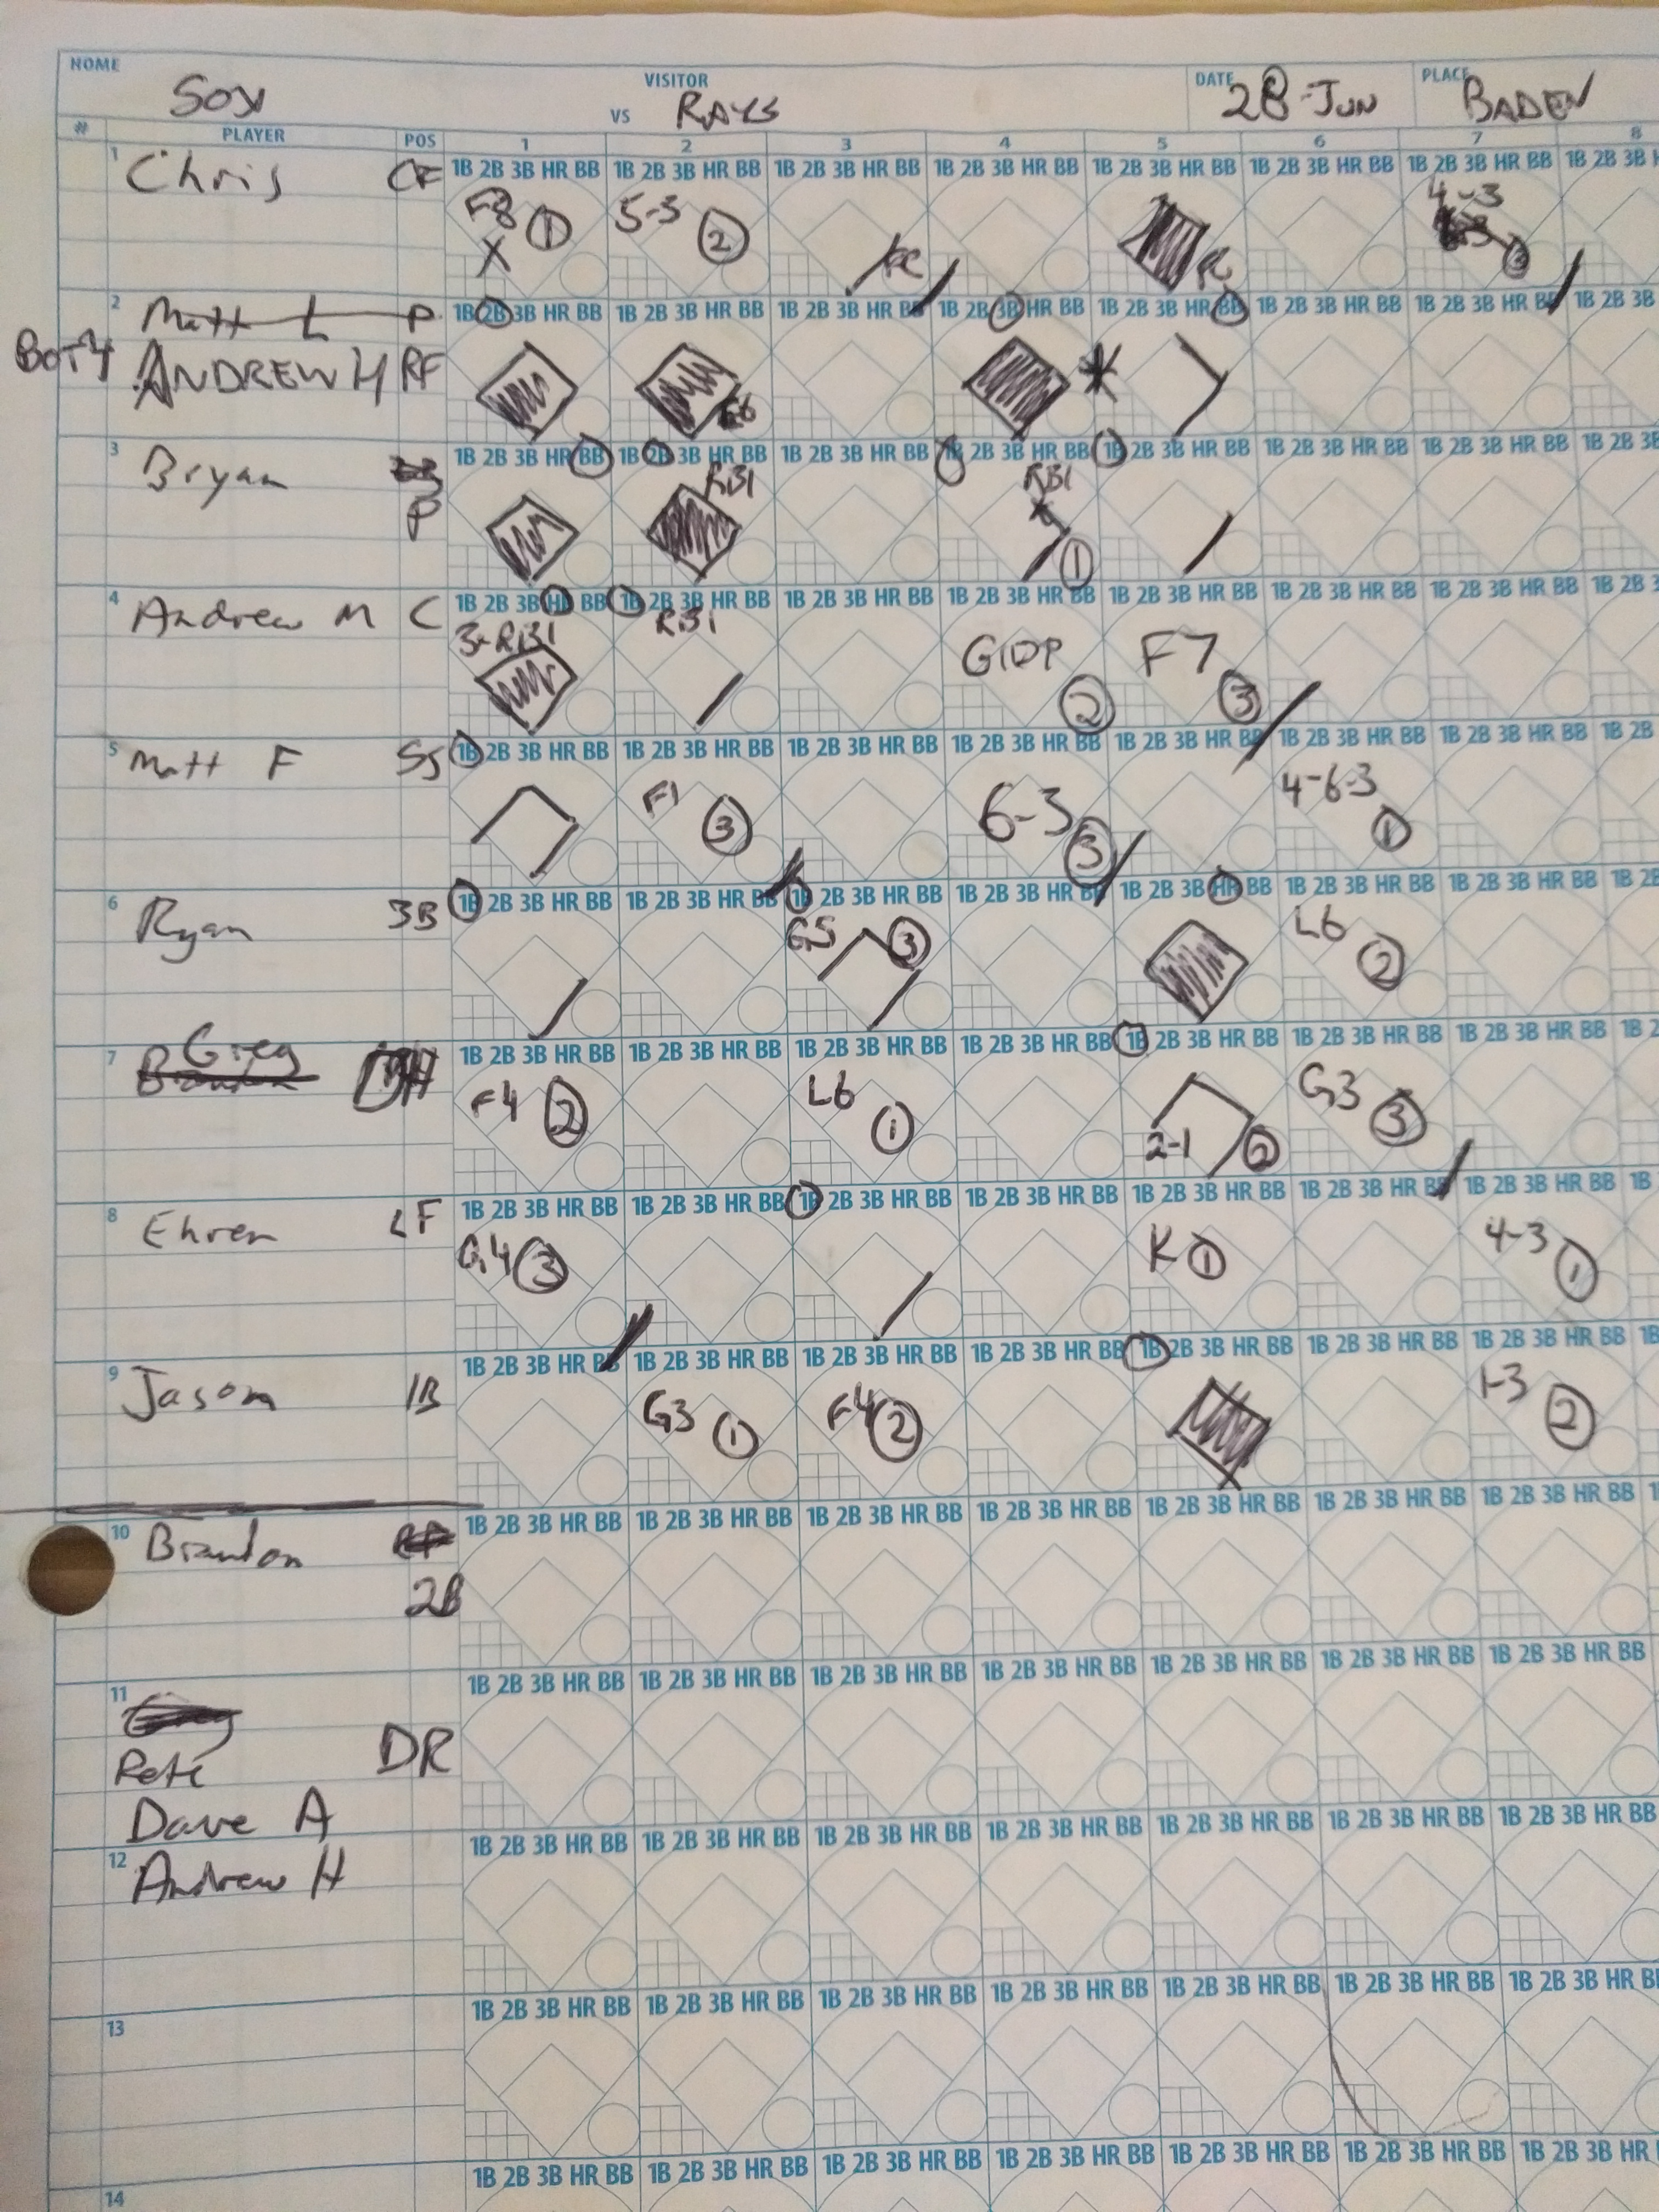 HOME VISITOR DATE PLACE
Sox VS RAYS 28-Jun BADEN
# PLAYER POS 1 2 3 4 5 6 7 8
1 Chris CF 1B 2B 3B HR BB 1B 2B 3B HR BB 1B 2B 3B HR BB 1B 2B 3B HR BB 1B 2B 3B HR BB 1B 2B 3B HR BB 1B 2B 3B HR BB 1B 2B 3B
F8 1 5-3 2 FC FC 4-3 3
X
2 Matt L P 1B 2B 3B HR BB 1B 2B 3B HR BB 1B 2B 3B HR BB 1B 2B 3B HR BB 1B 2B 3B HR BB 1B 2B 3B HR BB 1B 2B 3B HR BB 1B 2B 3B
BOT 4 ANDREW H RF E6 *
3 Bryan 1B 2B 3B HR BB 1B 2B 3B HR BB 1B 2B 3B HR BB 1B 2B 3B HR BB 1B 2B 3B HR BB 1B 2B 3B HR BB 1B 2B 3B HR BB 1B 2B 3B
P RBI RBI 1
4 Andrew M C 1B 2B 3B HR BB 1B 2B 3B HR BB 1B 2B 3B HR BB 1B 2B 3B HR BB 1B 2B 3B HR BB 1B 2B 3B HR BB 1B 2B 3B HR BB 1B 2B 3
3-RBI RBI GIDP 2 F7 3
5 Matt F SS 1B 2B 3B HR BB 1B 2B 3B HR BB 1B 2B 3B HR BB 1B 2B 3B HR BB 1B 2B 3B HR BB 1B 2B 3B HR BB 1B 2B 3B HR BB 1B 2B
F1 3 6-3 3 4-6-3 1
6 Ryan 3B 1B 2B 3B HR BB 1B 2B 3B HR BB 1B 2B 3B HR BB 1B 2B 3B HR BB 1B 2B 3B HR BB 1B 2B 3B HR BB 1B 2B 3B HR BB 1B 2B
G5 3 L6 2
7 Greg DH 1B 2B 3B HR BB 1B 2B 3B HR BB 1B 2B 3B HR BB 1B 2B 3B HR BB 1B 2B 3B HR BB 1B 2B 3B HR BB 1B 2B 3B HR BB 1B 2
Brandon F4 2 L6 1 2-1 2 G3 3
8 Ehren LF 1B 2B 3B HR BB 1B 2B 3B HR BB 1B 2B 3B HR BB 1B 2B 3B HR BB 1B 2B 3B HR BB 1B 2B 3B HR BB 1B 2B 3B HR BB 1B
G4 3 K 1 4-3 1
9 Jason 1B 1B 2B 3B HR BB 1B 2B 3B HR BB 1B 2B 3B HR BB 1B 2B 3B HR BB 1B 2B 3B HR BB 1B 2B 3B HR BB 1B 2B 3B HR BB
G3 1 F4 2 1-3 2
10 Brandon 1B 2B 3B HR BB 1B 2B 3B HR BB 1B 2B 3B HR BB 1B 2B 3B HR BB 1B 2B 3B HR BB 1B 2B 3B HR BB 1B 2B 3B HR BB
2B
11 Greg 1B 2B 3B HR BB 1B 2B 3B HR BB 1B 2B 3B HR BB 1B 2B 3B HR BB 1B 2B 3B HR BB 1B 2B 3B HR BB 1B 2B 3B HR BB
Pete DR
Dave A
12 Andrew H 1B 2B 3B HR BB 1B 2B 3B HR BB 1B 2B 3B HR BB 1B 2B 3B HR BB 1B 2B 3B HR BB 1B 2B 3B HR BB 1B 2B 3B HR BB
13 1B 2B 3B HR BB 1B 2B 3B HR BB 1B 2B 3B HR BB 1B 2B 3B HR BB 1B 2B 3B HR BB 1B 2B 3B HR BB 1B 2B 3B HR B
14 1B 2B 3B HR BB 1B 2B 3B HR BB 1B 2B 3B HR BB 1B 2B 3B HR BB 1B 2B 3B HR BB 1B 2B 3B HR BB 1B 2B 3B HR